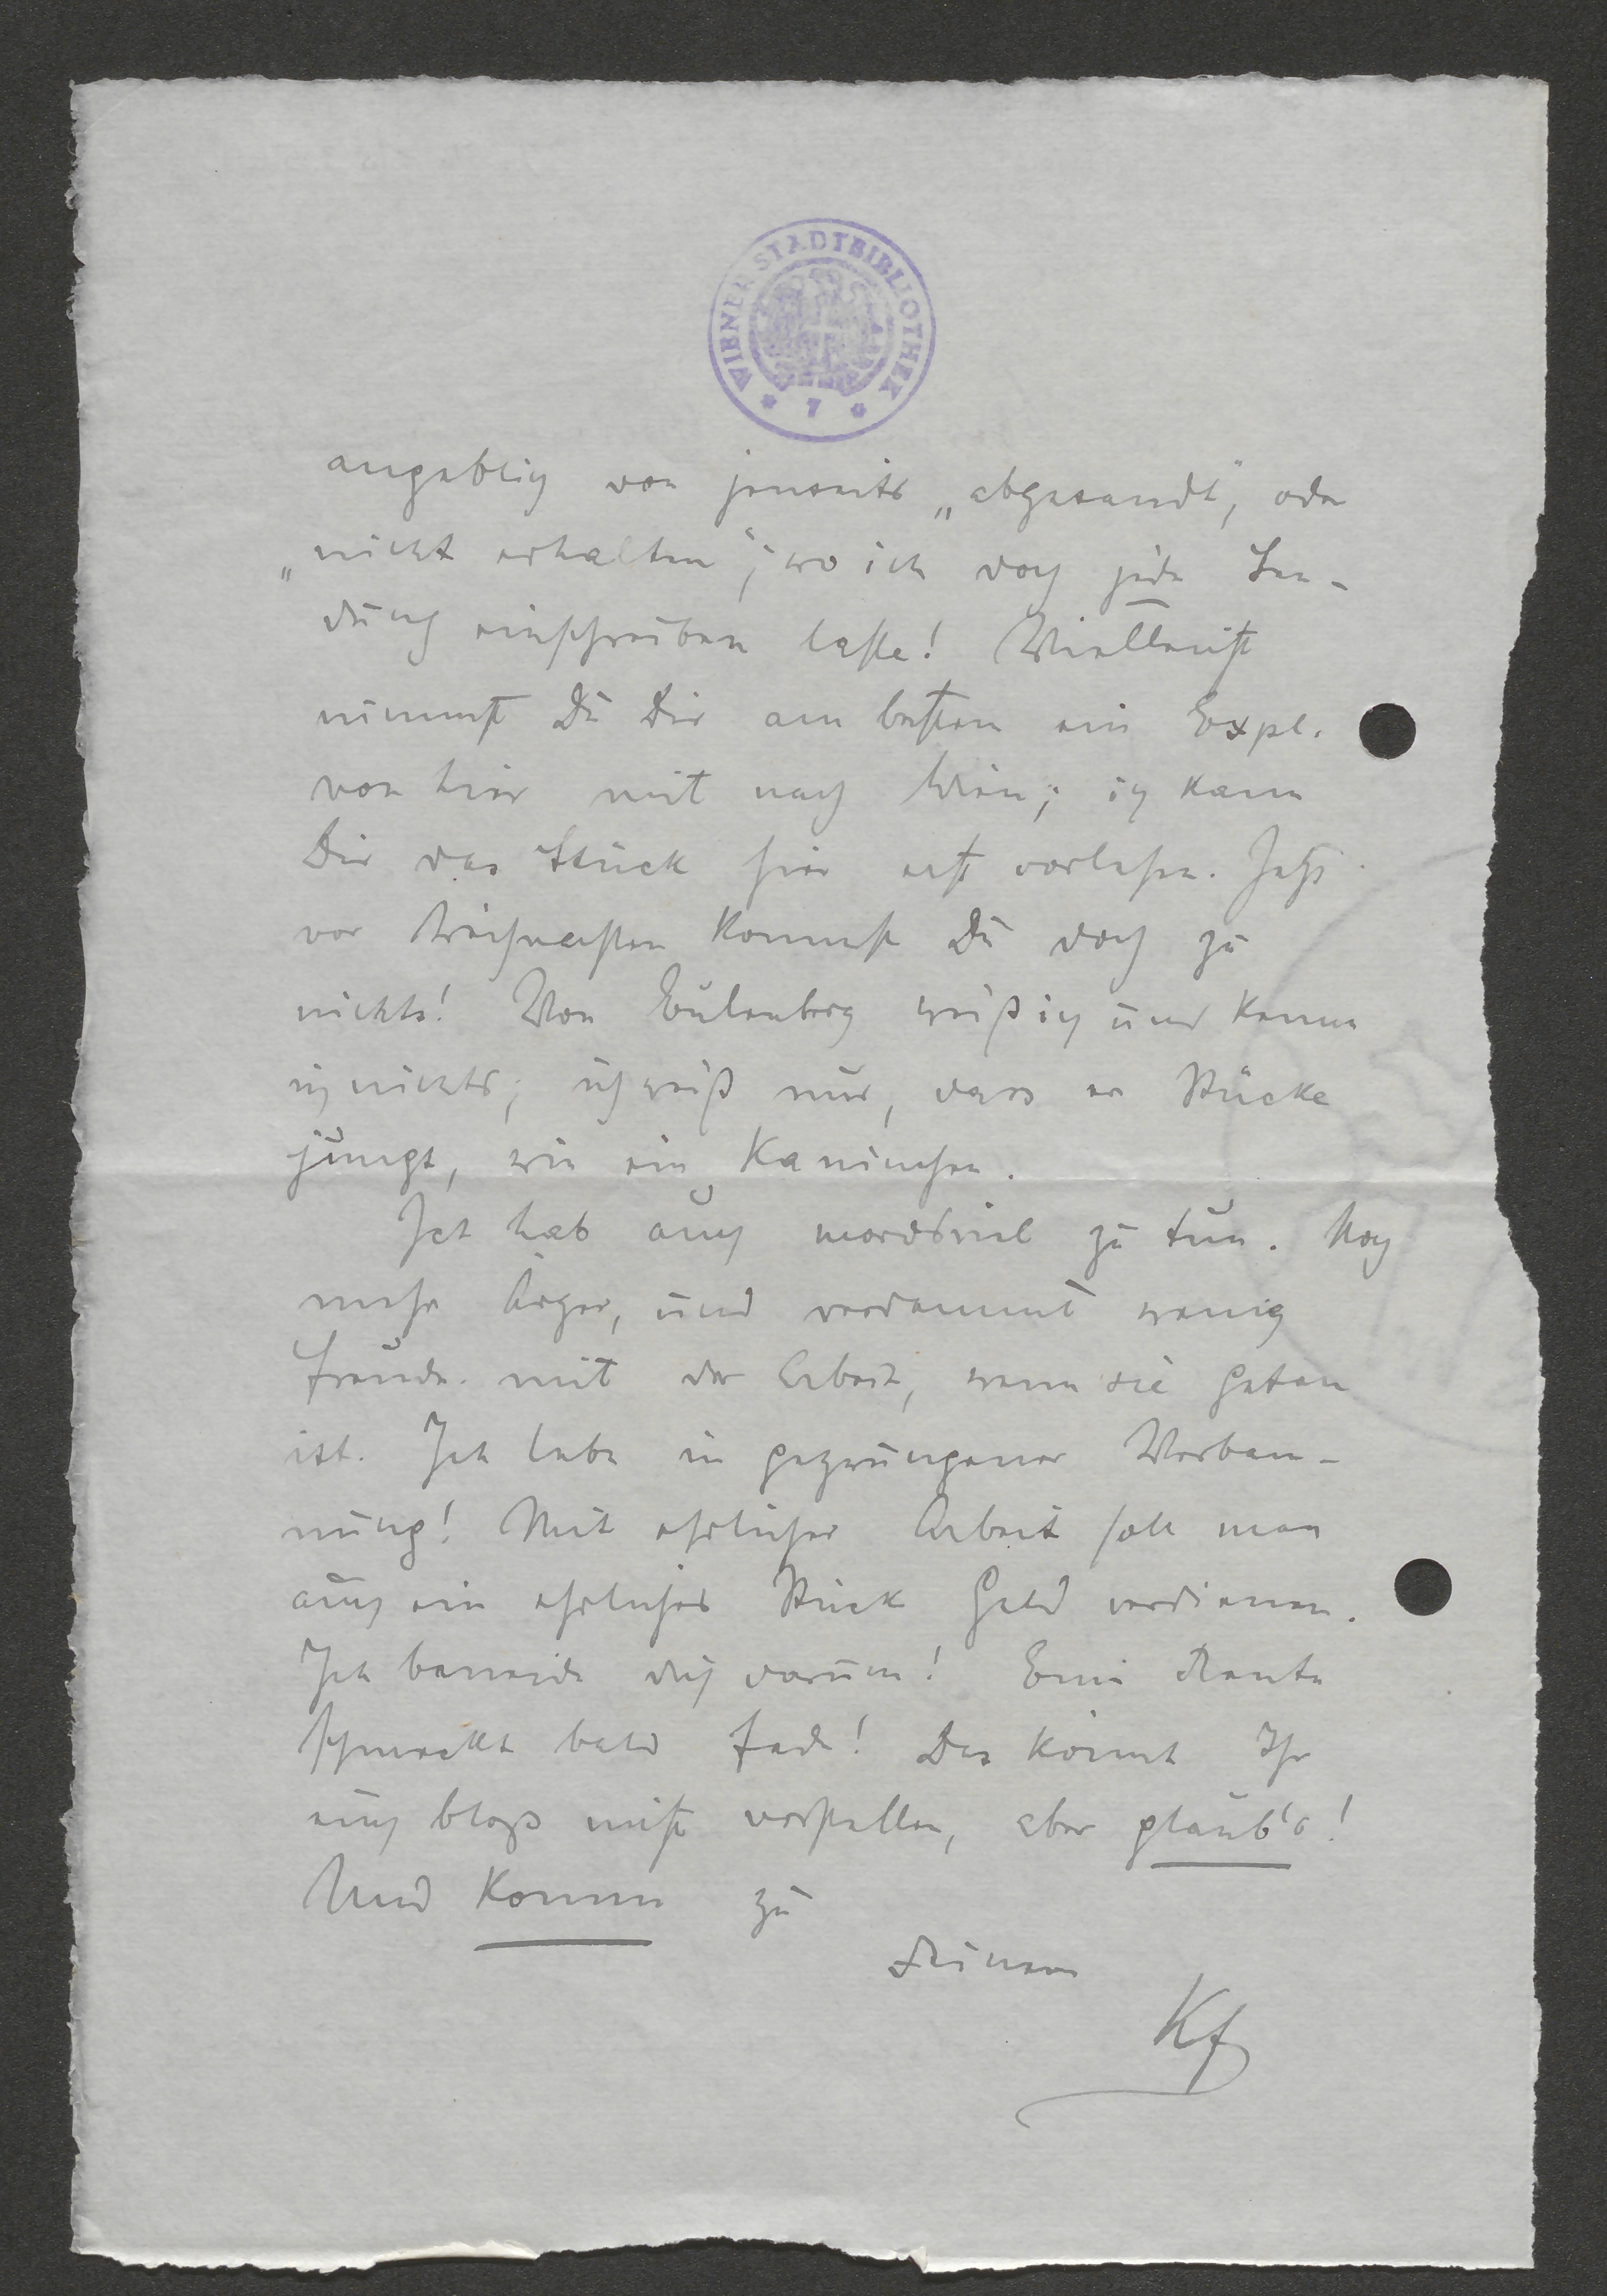 WIENER STADTBIBLIOTHEK
* 7 *
angeblich von jenseits „abgesandt“, oder
„nicht erhalten“; wo ich doch jede Sen-
dung einschreiben lasse! Vielleicht
nimmst Du Dir am besten ein Expl.
von hier mit nach Wien; ich kann
Dir das Stück hier erst vorlesen. Jetzt
vor Weihnachten kommst Du doch zu
nichts! Von Eulenberg weiß ich und kenne
ich nichts; ich weiß nur, dass er Stücke
jungt, wie ein Kaninchen.
Ich hab auch mordsviel zu tun. Noch
mehr Ärger, und verdammt wenig
Freude mit der Arbeit, wenn sie getan
ist. Ich lebe in gezwungener Verban-
nung! Mit ehrlicher Arbeit soll man
auch ein ehrliches Stück Geld verdienen.
Ich beneide dich darum! Eine Rente
schmeckt bald fade! Das könnt Ihr
euch bloß nicht vorstellen, aber glaub's!
Und komm zu
Deinem
Kf